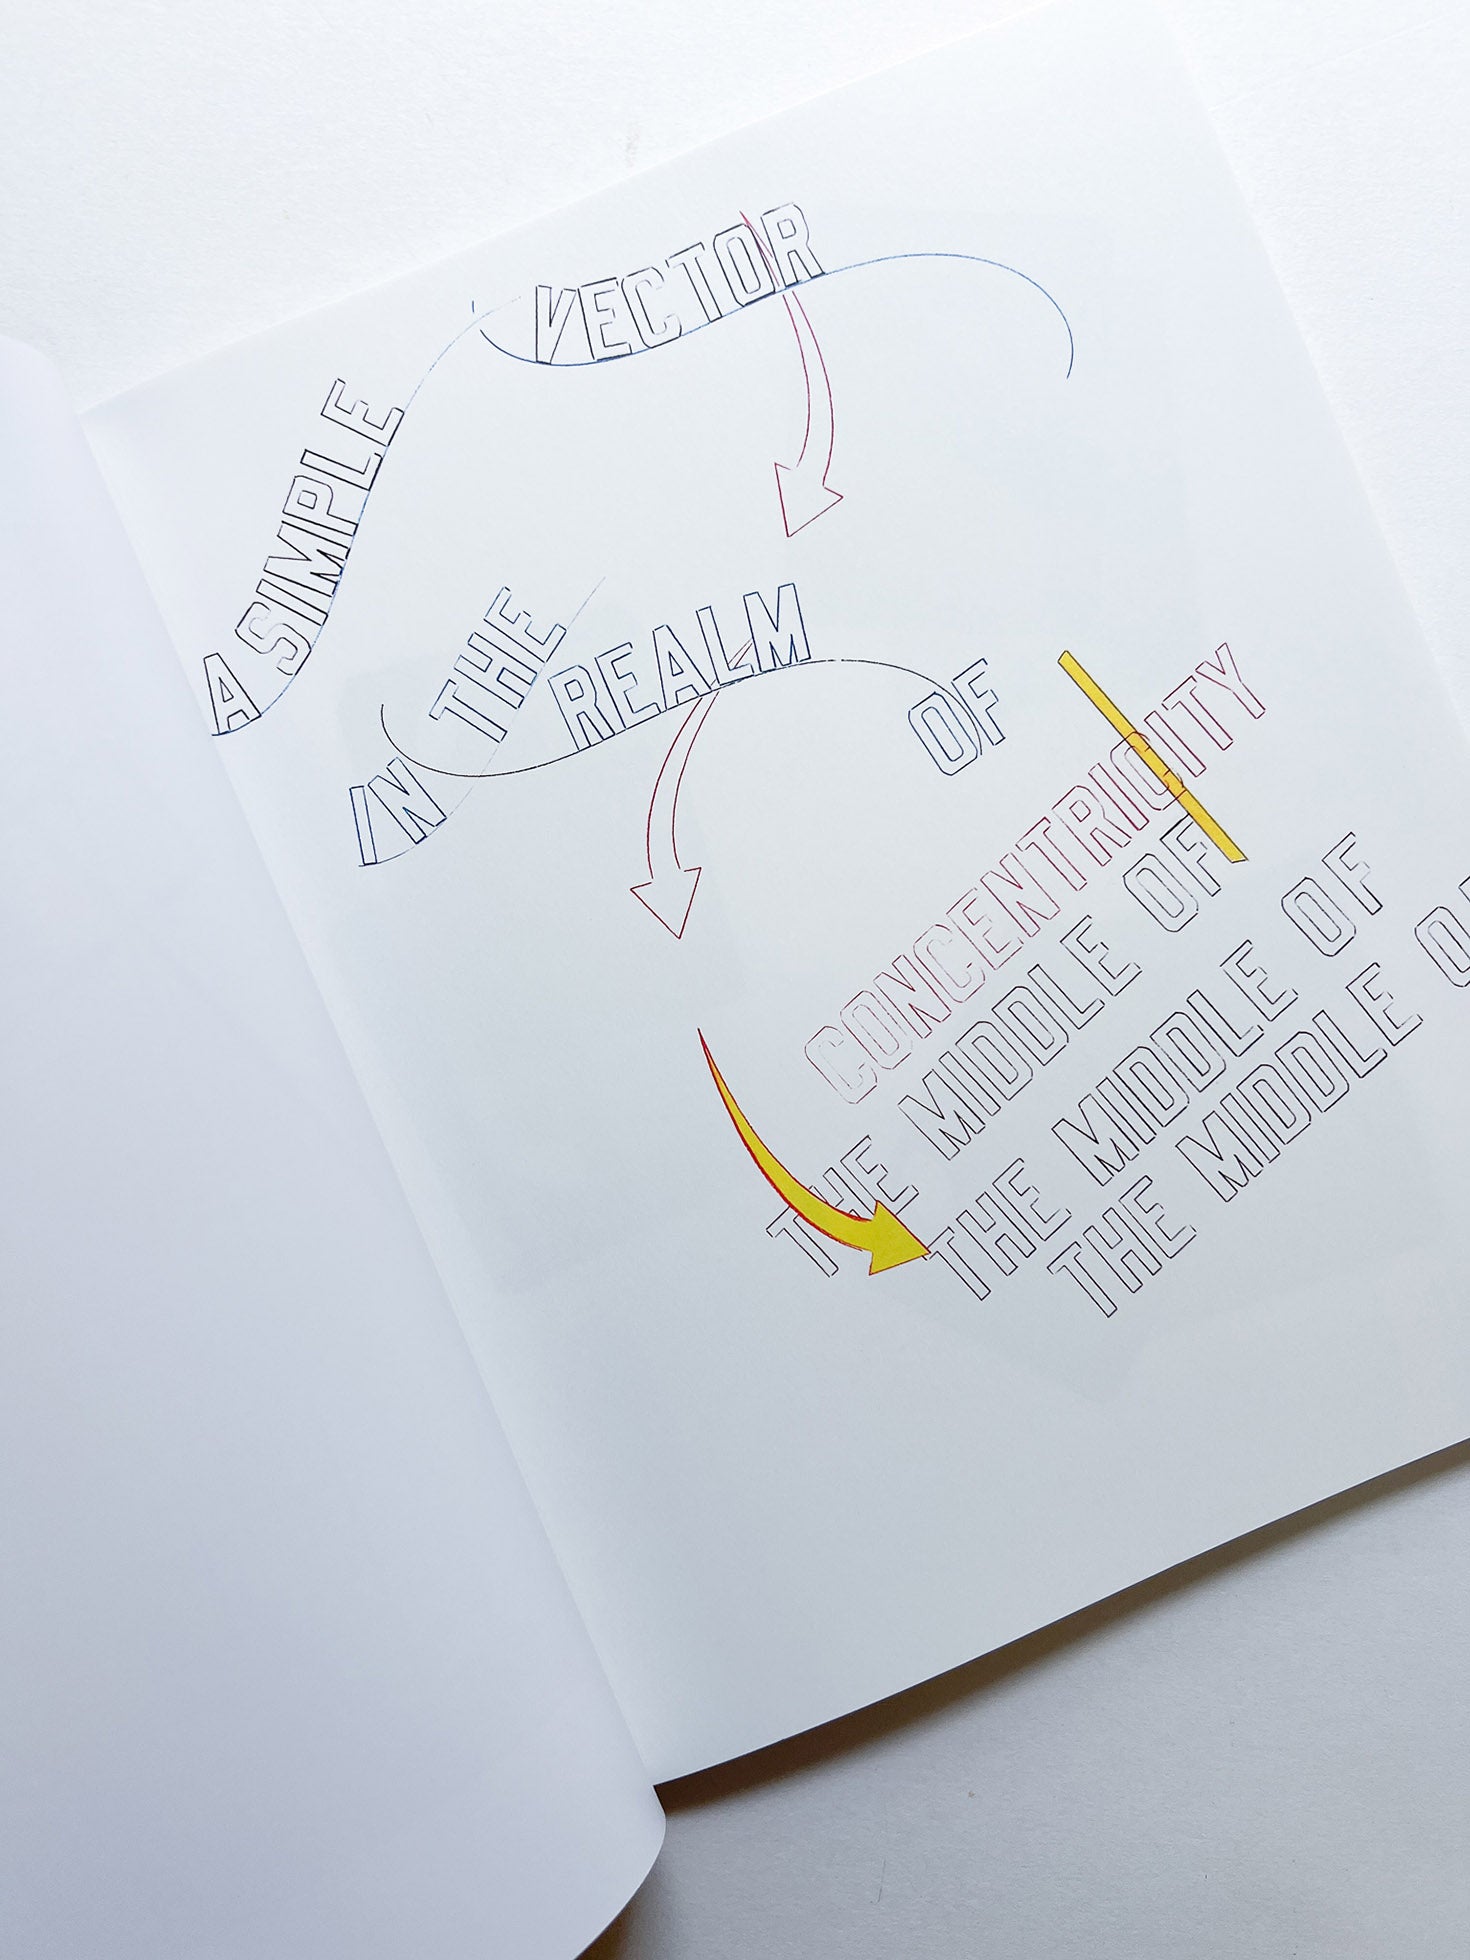 A SIMPLE VECTOR
IN THE REALM OF
CONCENTRICITY
THE MIDDLE OF
THE MIDDLE OF
THE MIDDLE OF